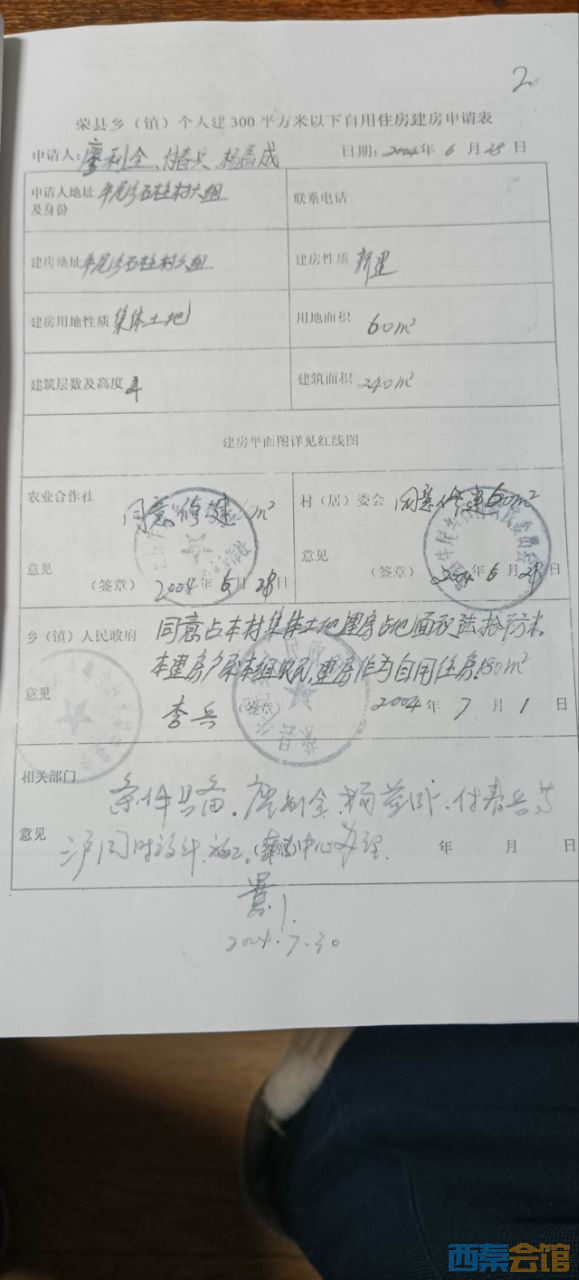 2
荣县乡（镇）个人建300平方米以下自用住房建房申请表
申请人：廖利全、付春兵 杨
日期：2004年6月28日
申请人地址及身份 石柱村六组
联系电话
建房地址 石柱村六组
建房性质 新建
建房用地性质 集体土地
用地面积 60m²
建筑层数及高度 4
建筑面积 240m²
建房平面图详见红线图
农业合作社 同意修建 m²
意见
（签章） 2004年6月28日
村（居）委会 同意修建60m²
意见
（签章） 2004年6月28日
乡（镇）人民政府 同意占本村集体土地建房占地面积陆拾平方米，
本建房户系本组农民，建房作为自用住房180m²
意见 李兵 （签章） 2004年7月1日
相关部门 条件具备。廖利全、杨 、付春兵等
意见 三户同时设计、施工。 中心办理. 年 月 日
2004.7.30
西秦会馆